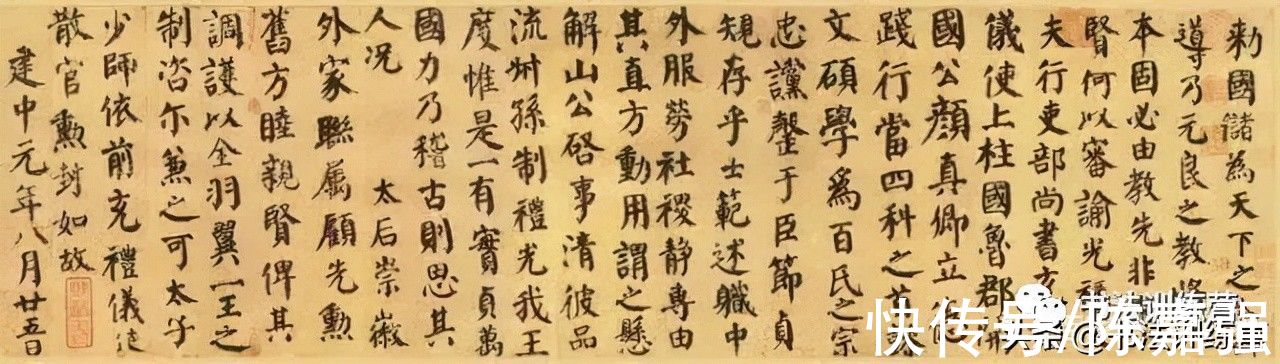 勑國儲為天下之
導乃元良之教將
本固必由教先非
賢何以審諭光祿
夫行吏部尚書充
儀使上柱國魯郡開
國公顏真卿立
踐行當四科之
文碩學爲百民之宗
忠讜罄于臣節貞
規存乎士範述職中
外服勞社稷静專由
其直方動用謂之懸
解山公啓事清彼品
流州孫制禮光我王
度惟是一有實貞萬
國力乃稽古則思其
人况 太后崇徽
外家聯屬顧先勳
舊方睦親賢俾其
調護以全羽翼一王之
制咨尔兼之可太子
少師依前充禮儀使
散官勳封如故
建中元年八月廿五日
快传号/陈嘉强